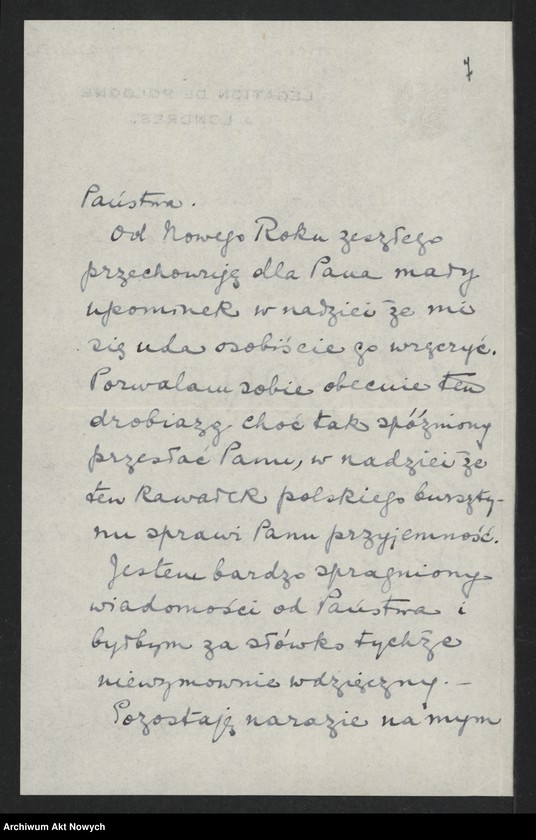 7
LEGATION DE POLOGNE
A LONDRES.
Państwa.
Od Nowego Roku zeszłego
przechowuję dla Pana mały
upominek w nadziei że mi
się uda osobiście go wręczyć.
Pozwalam sobie obecnie ten
drobiazg choć tak spóźniony
przesłać Panu, w nadziei że
ten kawałek polskiego burszty-
nu sprawi Panu przyjemność.
Jestem bardzo spragniony
wiadomości od Państwa i
byłbym za słówko tychże
niewymownie wdzięczny. –
Pozostaję narazie na mym
Archiwum Akt Nowych